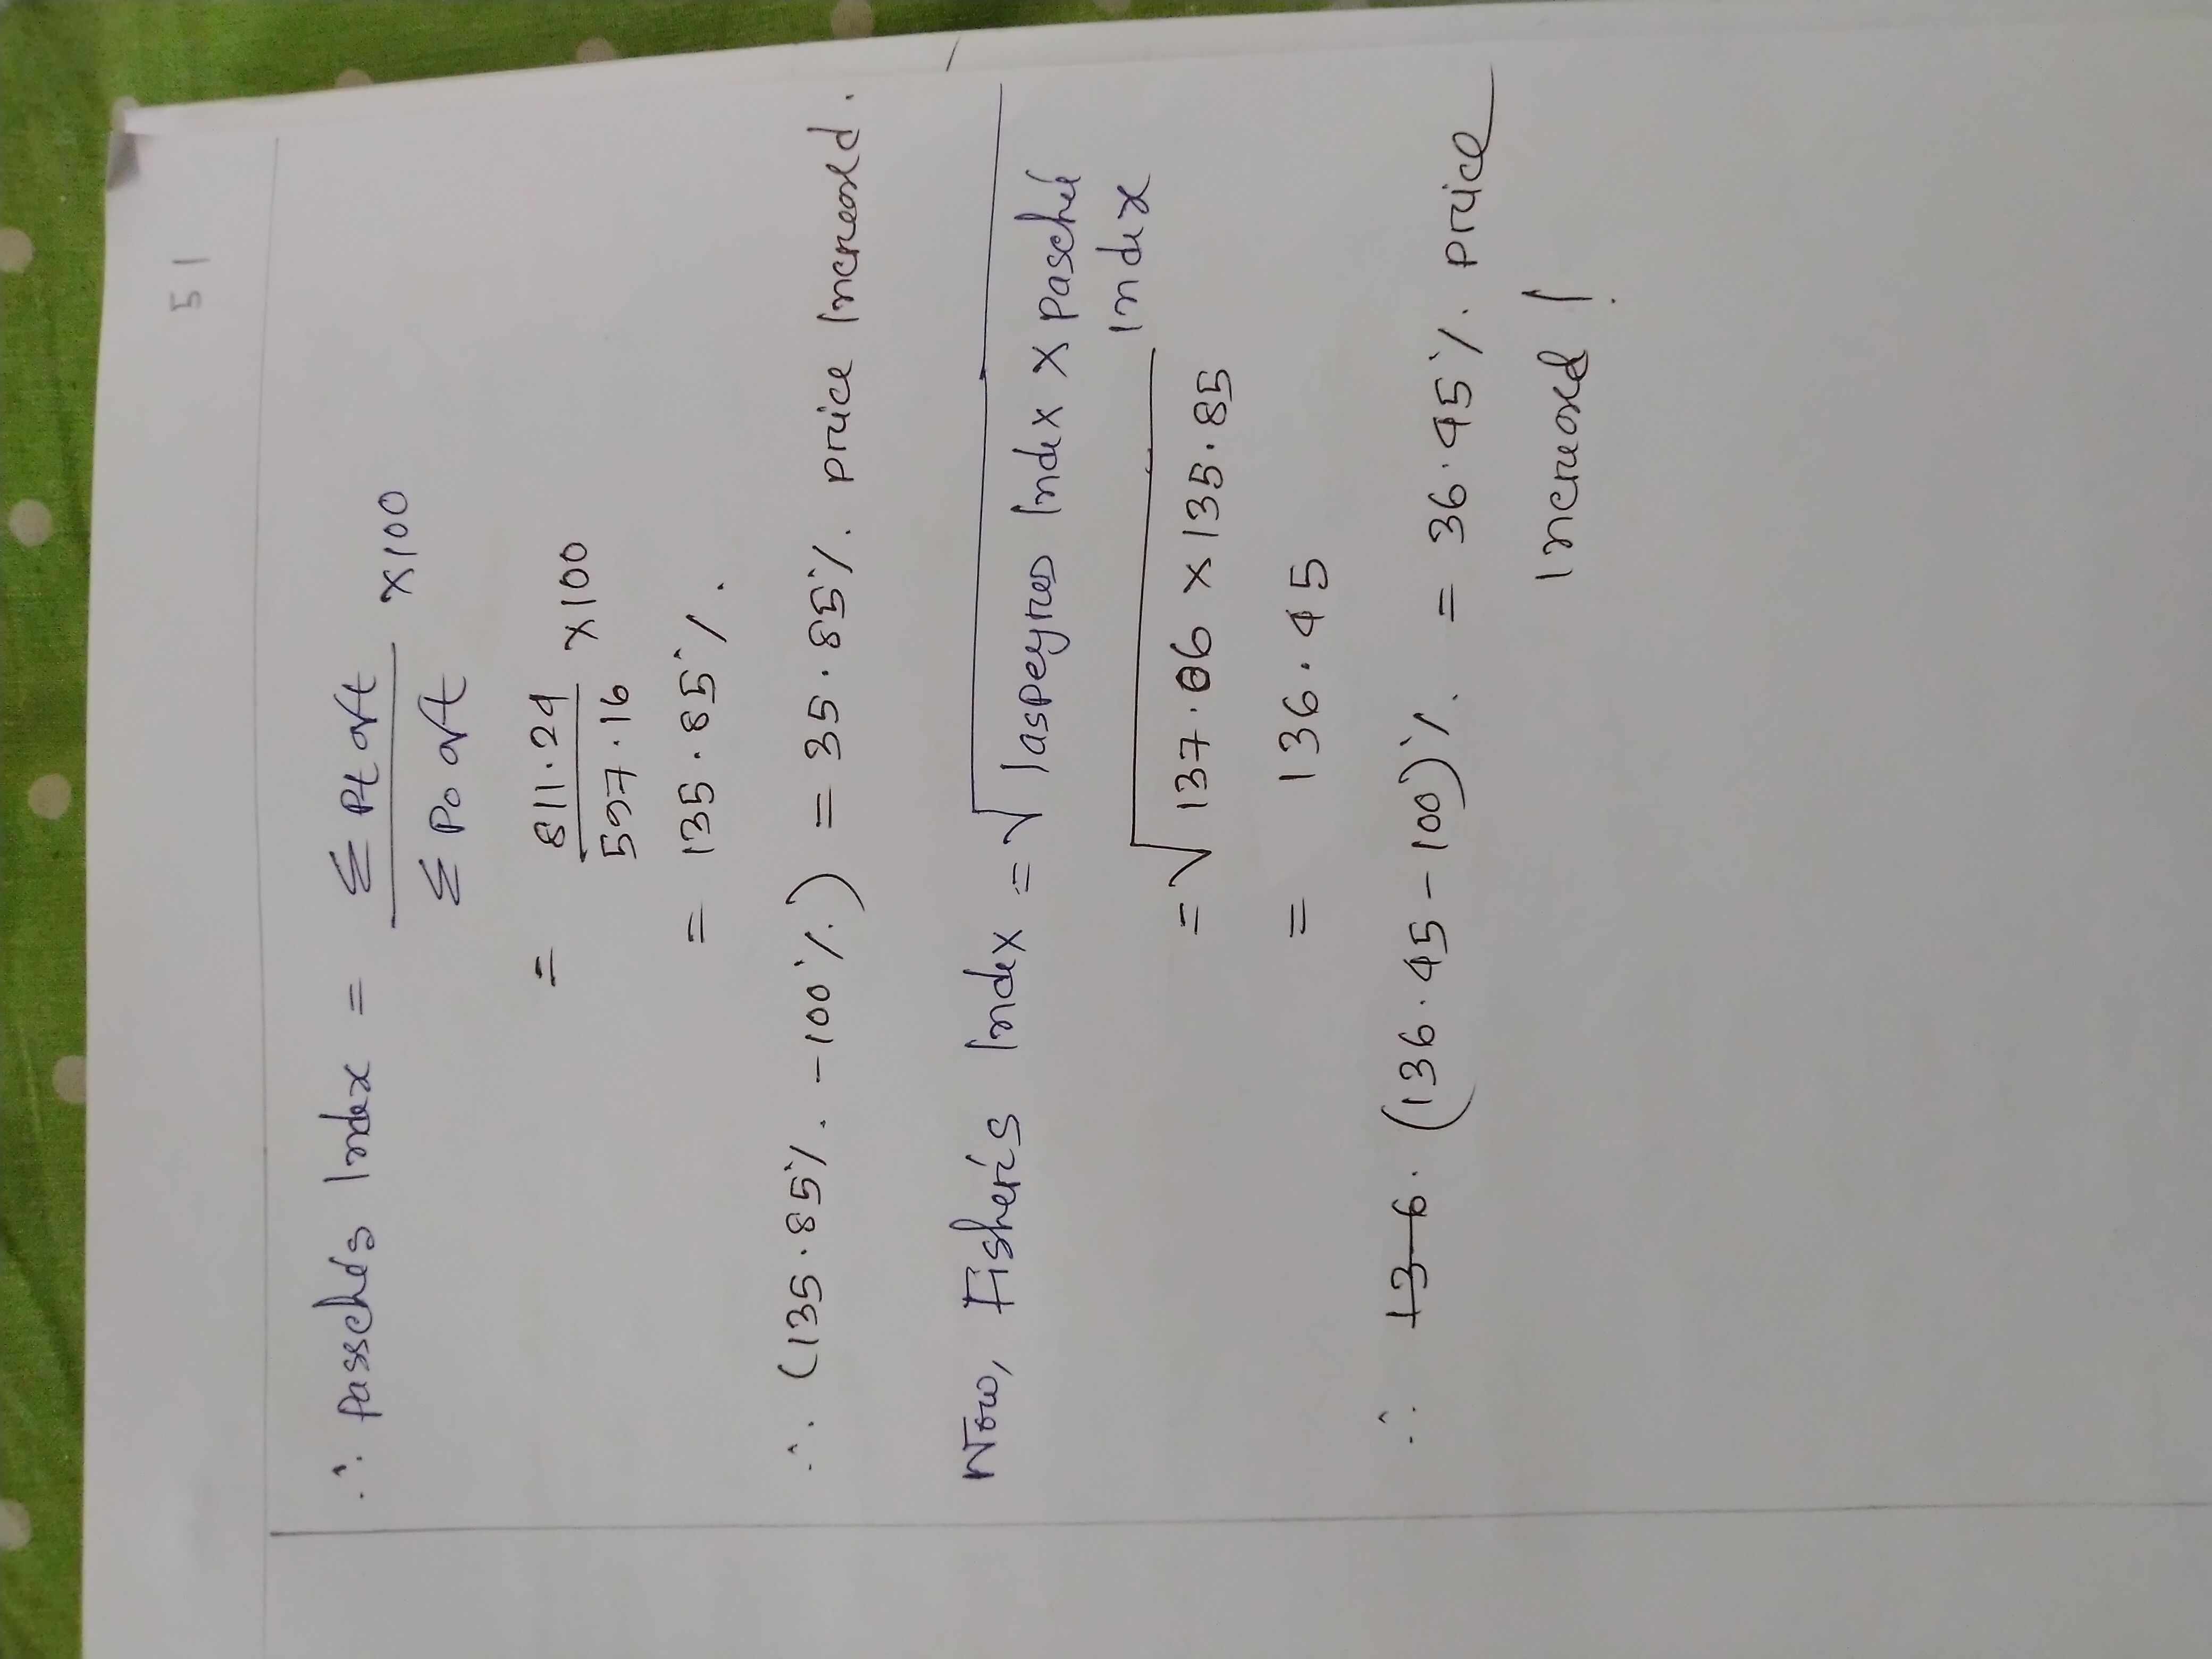 51
∴ Passche's Index = Σ Pt qt / Σ Po qt ×100
= 811.24 / 597.16 ×100
= 135.85%.
∴ (135.85% - 100%) = 35.85% price increased.
Now, Fisher's Index = √ laspeyres Index × Pasche's
Index
= √ 137.06 × 135.85
= 136.45
∴ 136. (136.45 - 100)% = 36.45% price
increased!